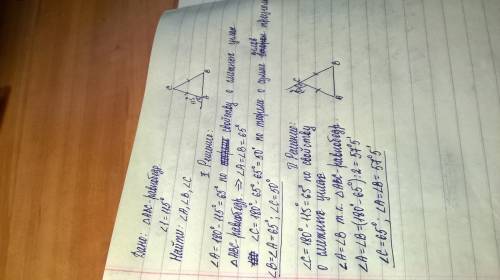 Дано: △ABC-равнобедр.
∠1=115°
Найти: ∠A, ∠B, ∠C
C
B
A
115°
I Решение:
∠A = 180° - 115° = 65° по свойству о смежных углах
△ABC равнобедр. ⇒ ∠A = ∠B = 65°
∠C = 180° - 65° - 65° = 50° по теореме о сумме углов
∠B = ∠A = 65°, ∠C = 50°
II Решение:
C
B
A
∠C = 180° - 115° = 65° по свойству
о смежных углах
∠A = ∠B т.к. △ABC-равнобедр.
∠A = ∠B = (180° - 65°) : 2 = 57°5'
∠C = 65°, ∠A = ∠B = 57°5'